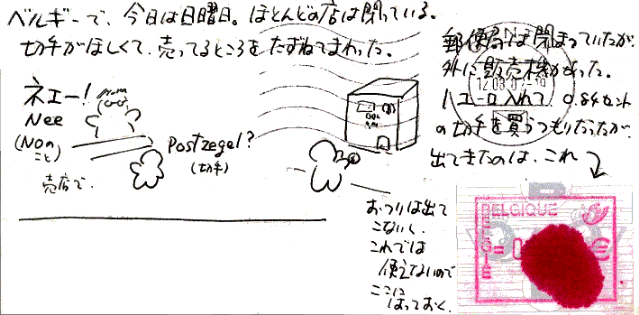 ベルギーで、今日は日曜日。ほとんどの店は閉っている。
切手がほしくて、売ってるところをたずねてまわった。
ネェー!
Nee
(Noのこと)
売店で.
Postzegel?
(切手)
郵便局は閉まっていたが
外に販売機があった。
1ユーロ入れて 0.84セント
の切手を買うつもりだったが、
出てきたのは、これ
おつりは出て
こないし、
これでは
使えないので
ここに
はっておく.
BELGIQUE
BELGIE
= 0
€